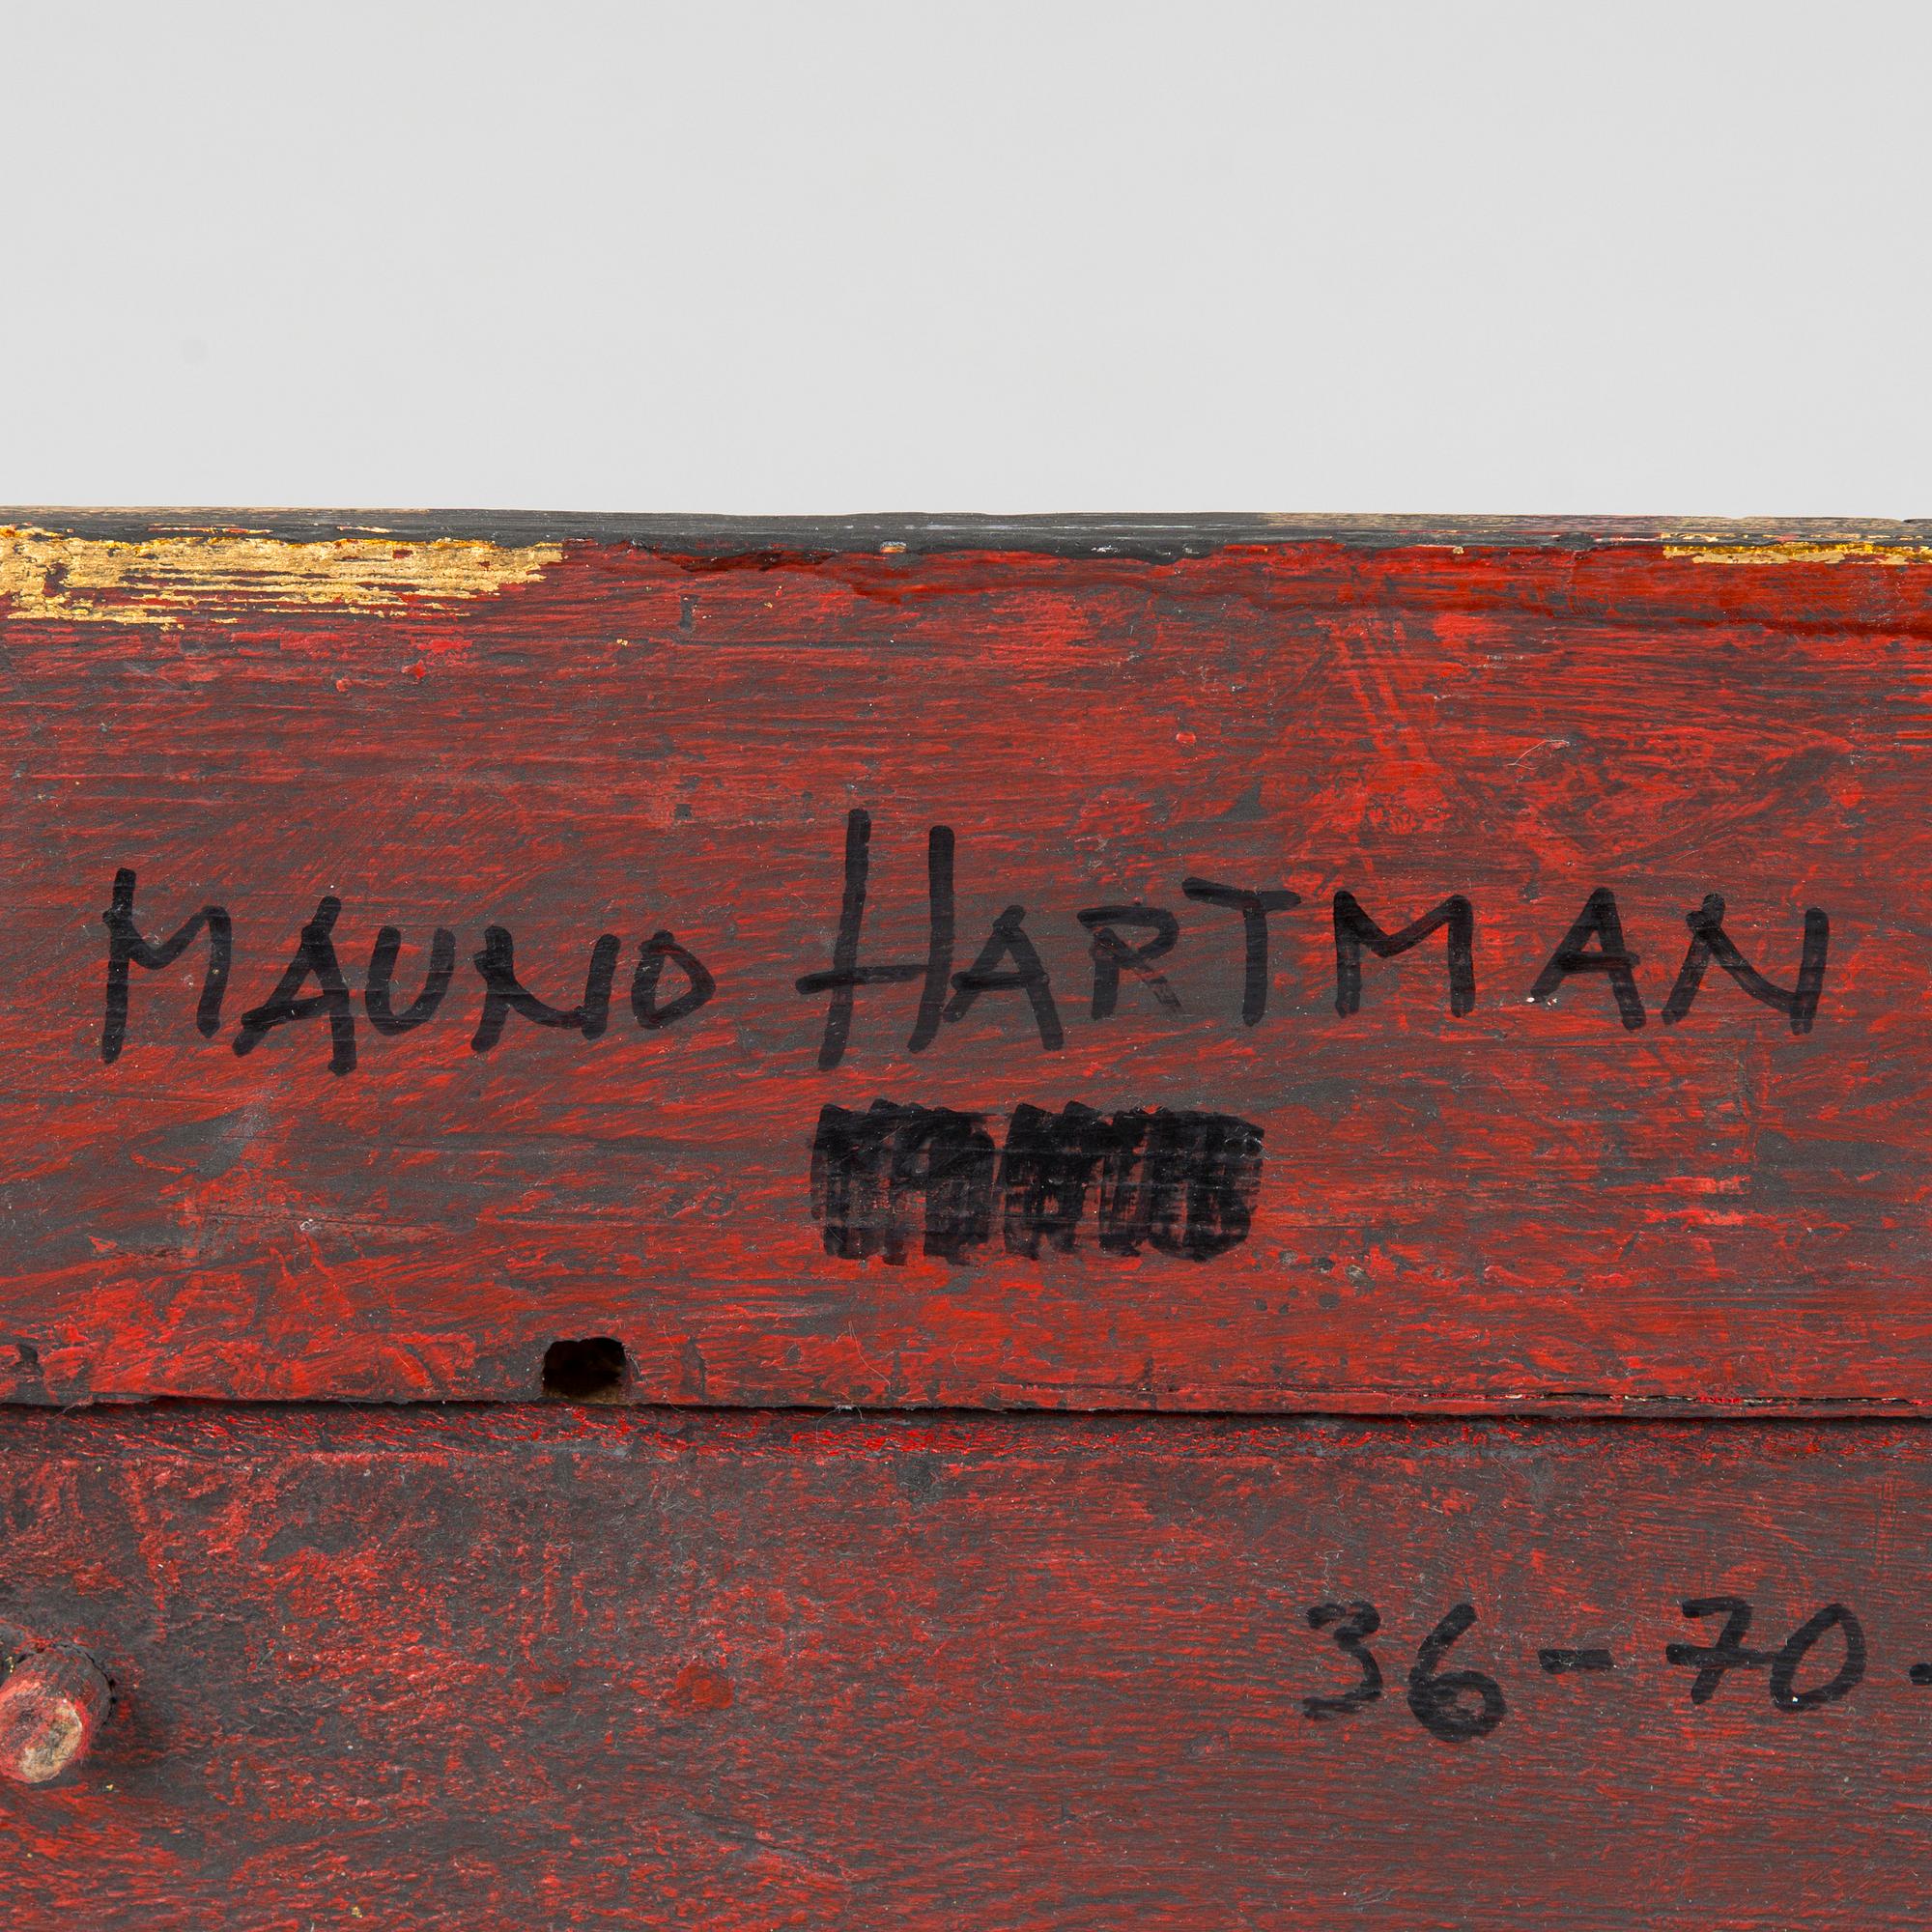 MAUNO HARTMAN
36-70-